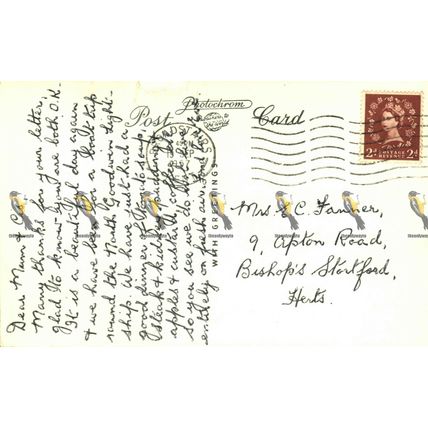 Dear Mum &
Many thanks for your letter,
glad to know you are both O.K.
It is a beautiful day again
& we have been for a boat trip
round the North Goodwin Light-
ship. We have just had a
good dinner of tomato soup,
steak & kidney pudding,
apples & custard, coffee
so you see we do not
entirely on fresh air
WITH GREETINGS
Photochrom
Post Card
POSTAGE REVENUE
2d 2d
Mrs C. Farmer,
9, Apton Road,
Bishop's Stortford,
Herts.